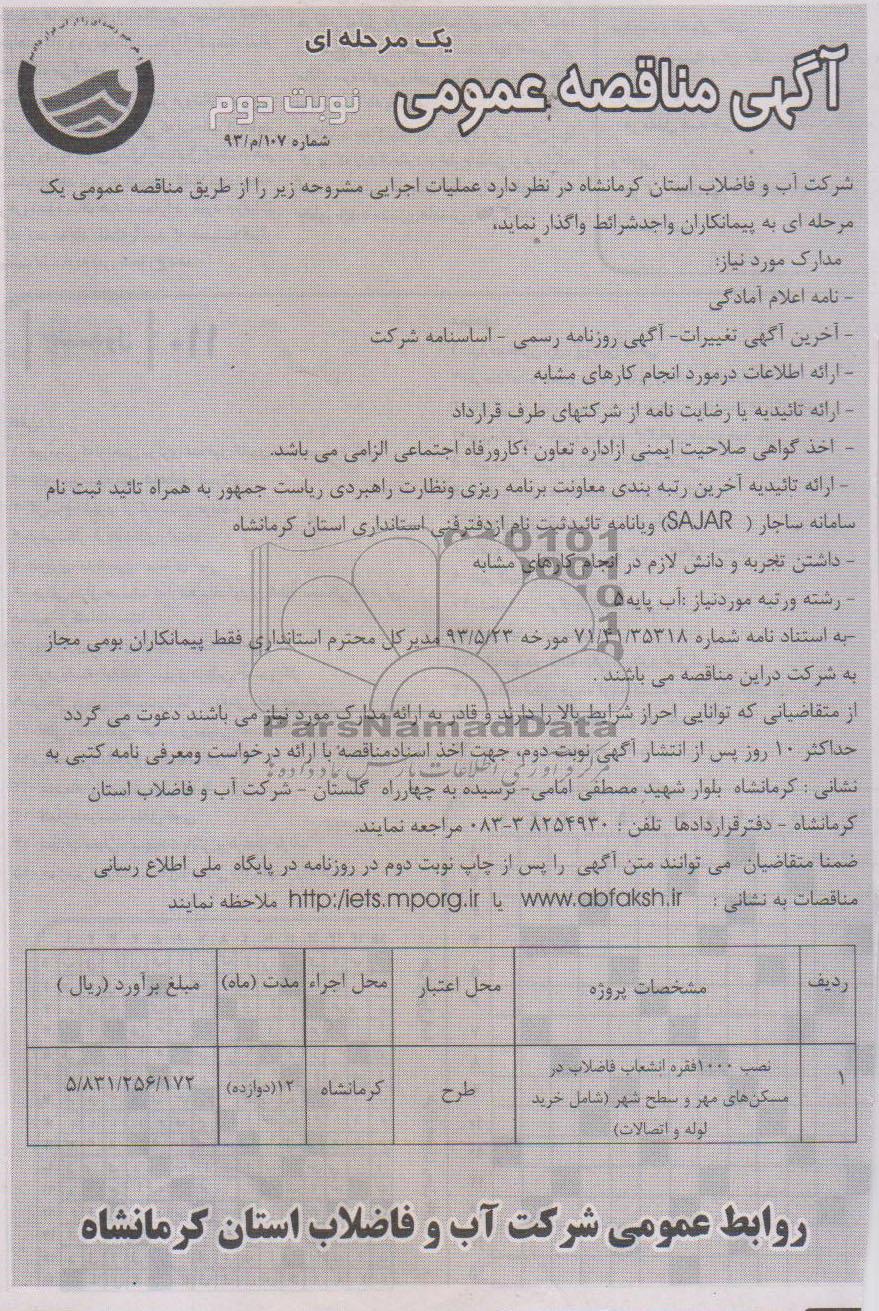 یک مرحله ای
آگهی مناقصه عمومی
نوبت دوم
شماره ۱۰۷/م/۹۳
شرکت آب و فاضلاب استان کرمانشاه در نظر دارد عملیات اجرایی مشروحه زیر را از طریق مناقصه عمومی یک
مرحله ای به پیمانکاران واجدشرائط واگذار نماید،
مدارک مورد نیاز:
- نامه اعلام آمادگی
- آخرین آگهی تغییرات- آگهی روزنامه رسمی - اساسنامه شرکت
- ارائه اطلاعات درمورد انجام کارهای مشابه
- ارائه تائیدیه یا رضایت نامه از شرکتهای طرف قرارداد
- اخذ گواهی صلاحیت ایمنی ازاداره تعاون ؛کارورفاه اجتماعی الزامی می باشد.
- ارائه تائیدیه آخرین رتبه بندی معاونت برنامه ریزی ونظارت راهبردی ریاست جمهور به همراه تائید ثبت نام
سامانه ساجار ( SAJAR) ویانامه تائیدثبت نام ازدفترفنی استانداری استان کرمانشاه
- داشتن تجربه و دانش لازم در انجام کارهای مشابه
- رشته ورتبه موردنیاز :آب پایه۵
-به استناد نامه شماره ۷۱/۴۱/۳۵۳۱۸ مورخه ۹۳/۵/۲۳ مدیرکل محترم استانداری فقط پیمانکاران بومی مجاز
به شرکت دراین مناقصه می باشند .
از متقاضیانی که توانایی احراز شرایط بالا را دارند و قادر به ارائه مدارک مورد نیاز می باشند دعوت می گردد
حداکثر ۱۰ روز پس از انتشار آگهی نوبت دوم، جهت اخذ اسنادمناقصه با ارائه درخواست ومعرفی نامه کتبی به
نشانی : کرمانشاه بلوار شهید مصطفی امامی- نرسیده به چهارراه گلستان - شرکت آب و فاضلاب استان
کرمانشاه - دفترقراردادها تلفن : ۸۲۵۴۹۳۰ ۳-۰۸۳ مراجعه نمایند.
ضمنا متقاضیان می توانند متن آگهی را پس از چاپ نوبت دوم در روزنامه در پایگاه ملی اطلاع رسانی
مناقصات به نشانی : www.abfaksh.ir یا http:/iets.mporg.ir ملاحظه نمایند
ردیف مشخصات پروژه محل اعتبار محل اجراء مدت (ماه) مبلغ برآورد (ریال )
۱ نصب ۱۰۰۰فقره انشعاب فاضلاب در
مسکن‌های مهر و سطح شهر (شامل خرید
لوله و اتصالات)
طرح کرمانشاه ۱۲(دوازده) ۵/۸۳۱/۲۵۶/۱۷۲
روابط عمومی شرکت آب و فاضلاب استان کرمانشاه
ParsNamadData